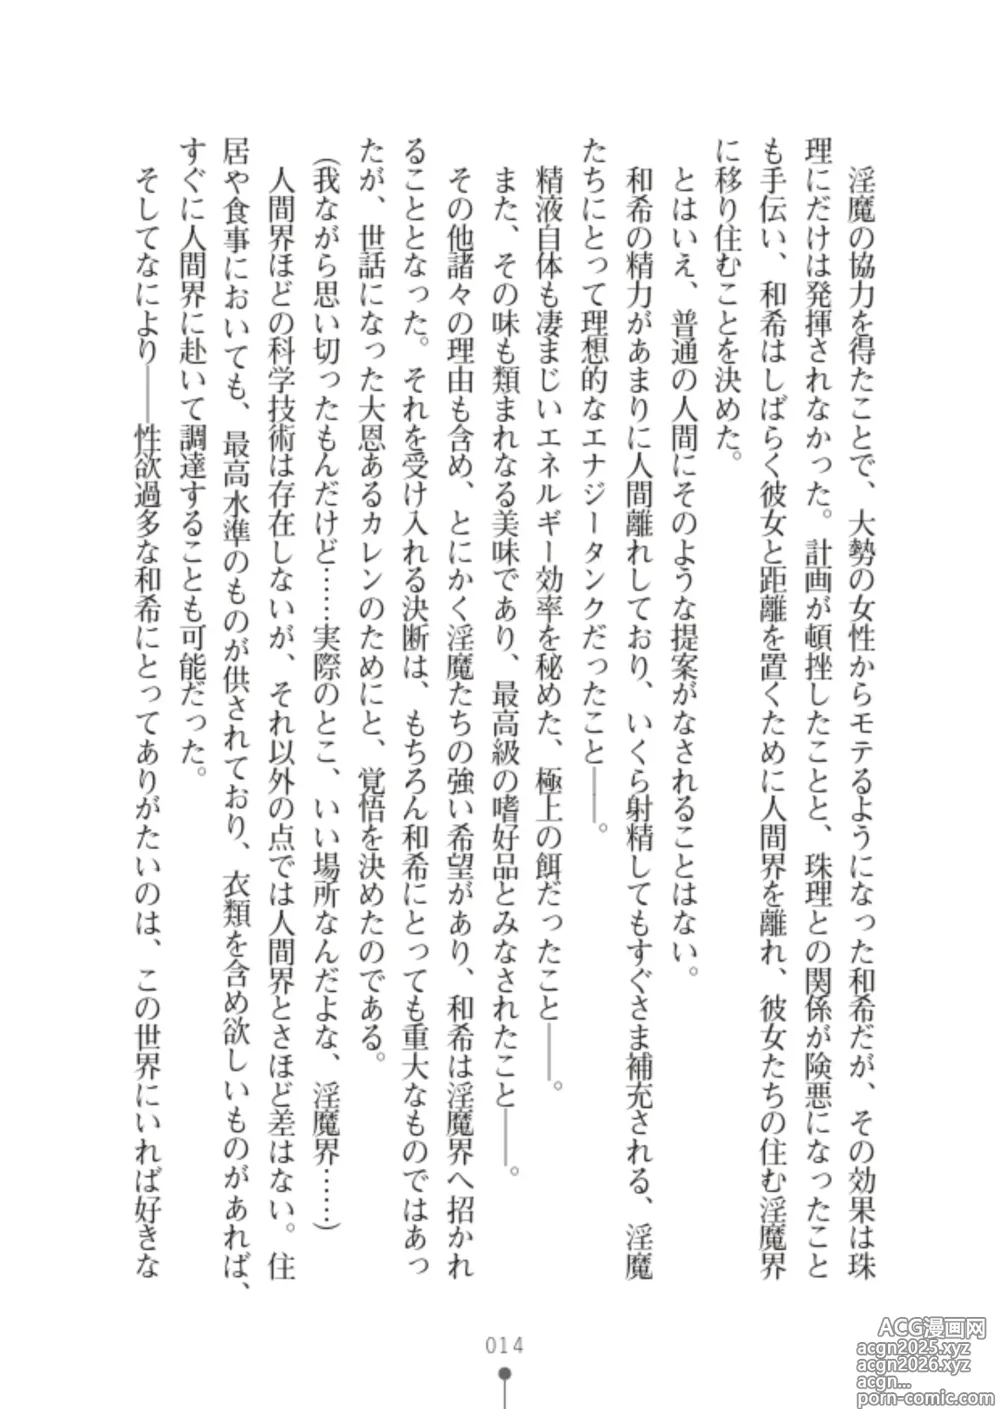 淫魔の協力を得たことで、大勢の女性からモテるようになった和希だが、その効果は珠
理にだけは発揮されなかった。計画が頓挫したことと、珠理との関係が険悪になったこと
も手伝い、和希はしばらく彼女と距離を置くために人間界を離れ、彼女たちの住む淫魔界
に移り住むことを決めた。
とはいえ、普通の人間にそのような提案がなされることはない。
和希の精力があまりに人間離れしており、いくら射精してもすぐさま補充される、淫魔
たちにとって理想的なエナジータンクだったこと――。
精液自体も凄まじいエネルギー効率を秘めた、極上の餌だったこと――。
また、その味も類まれなる美味であり、最高級の嗜好品とみなされたこと――。
その他諸々の理由も含め、とにかく淫魔たちの強い希望があり、和希は淫魔界へ招かれ
ることとなった。それを受け入れる決断は、もちろん和希にとっても重大なものではあっ
たが、世話になった大恩あるカレンのためにと、覚悟を決めたのである。
(我ながら思い切ったもんだけど……実際のとこ、いい場所なんだよな、淫魔界……)
人間界ほどの科学技術は存在しないが、それ以外の点では人間界とさほど差はない。住
居や食事においても、最高水準のものが供されており、衣類を含め欲しいものがあれば、
すぐに人間界に赴いて調達することも可能だった。
そしてなにより――性欲過多な和希にとってありがたいのは、この世界にいれば好きな
014
ACG漫画网
acgn2025.xyz
acgn2026.xyz
acgn...
porn-comic.com